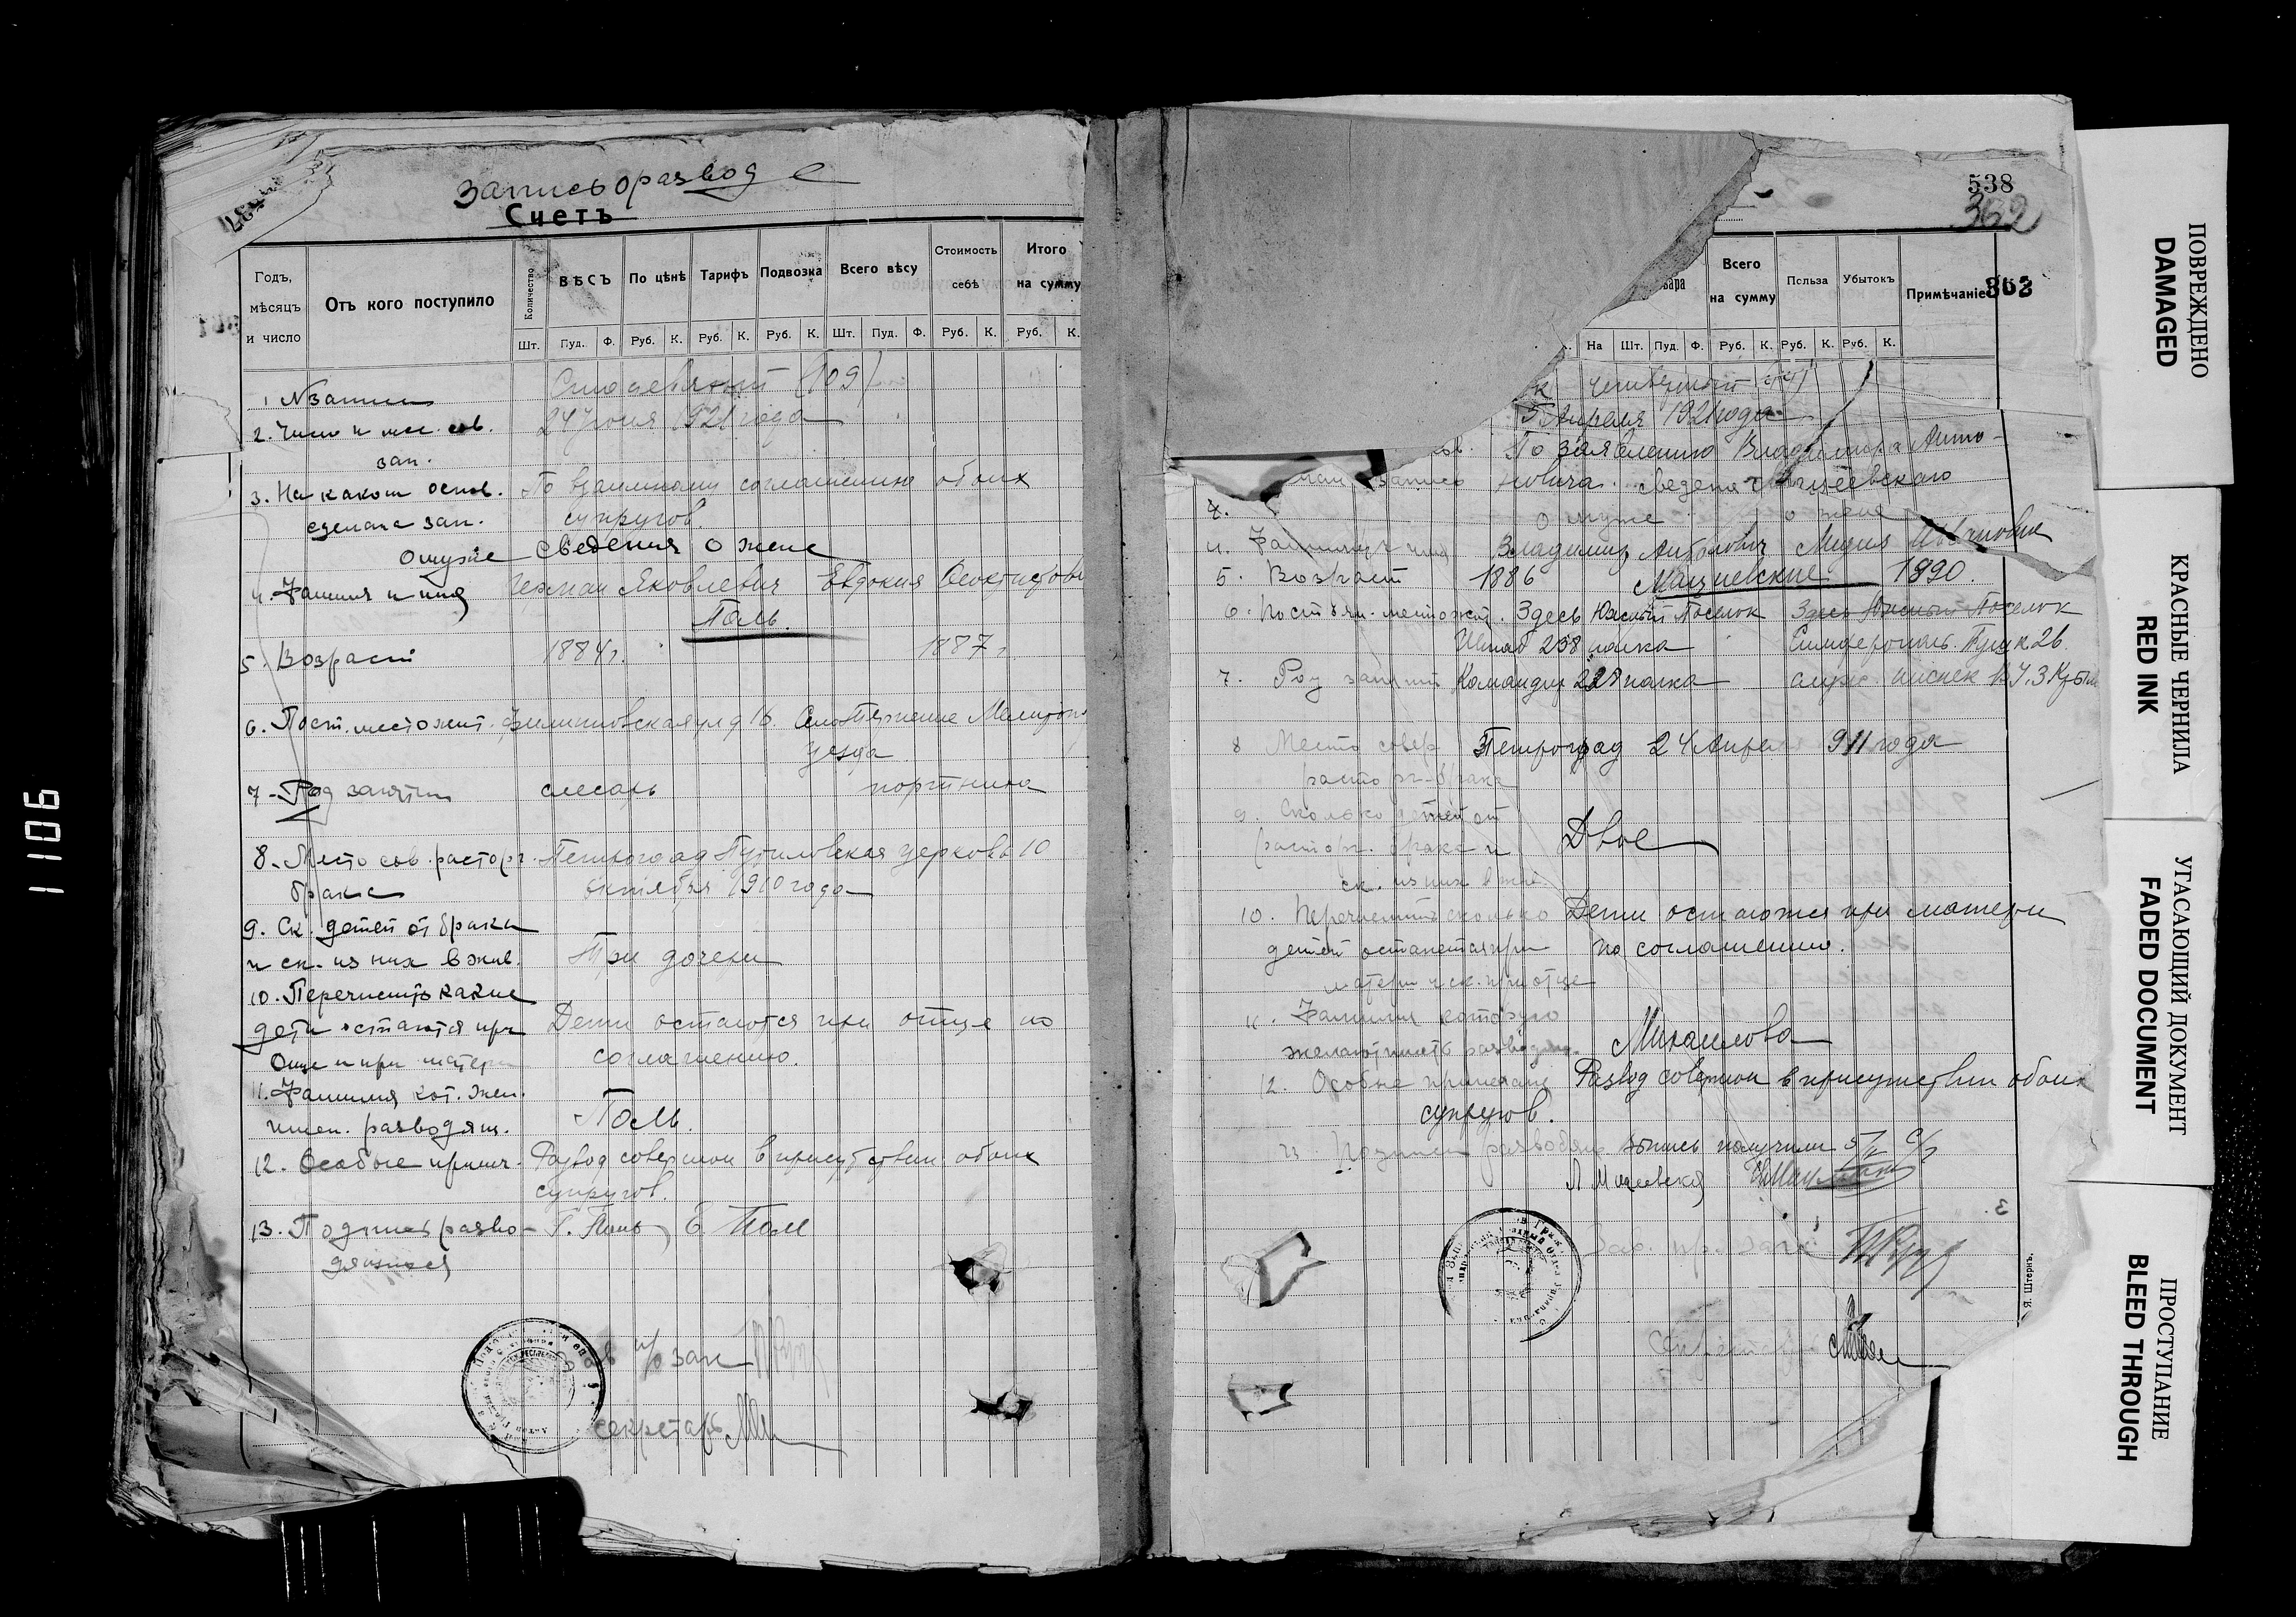 Запись о разводе
Счетъ
Годъ, мѣсяцъ и число
Отъ кого поступило
Количество
ВѢСЪ
По цѣнѣ
Тарифъ
Подвозка
Всего вѣсу
Стоимость себѣ
Итого на сумму
Шт. Пуд. Ф. Руб. К. Руб. К. Руб. К. Шт. Пуд. Ф. Руб. К. Руб. К.
1 № записи Сто девятый (109)
2. Число и мес. сов. 24 Июня 1921 года
зап.
3. На каком основ. По взаимному соглашению обоих
сделана зап. супругов.
О муже Сведения о жене
4. Фамилия и имя Герман Яковлевич Евдокия
Поль.
5. Возраст 1884 г. 1887 г.
6. Пост. местожит. 16. Село Терпение
уезда
7 - Род занятий слесарь портниха
8. Место сов. расторг. Петроград Путиловская церковь 10
брака октября 1910 года
9. Ск. детей от брака
и ск. из них в жив. Три дочери
10. Перечислить какие
дети остаются при Дети остаются при отце по
отце и при матери соглашению.
11. Фамилия кот. жел.
имен. разводящ. Поль.
12. Особые примеч. Развод совершон в присутствии обоих
супругов.
13. Подписи разво- Г. Поль Е. Поль
дящихся
зап
секретарь
538
362
363
вара
Всего на сумму
Польза
Убытокъ
Примѣчаніе
На Шт. Пуд. Ф. Руб. К. Руб. К. Руб. К.
Четвертый (44)
5 Апреля 1921 года
По заявлению Владимира Анто-
запись новича
о муже о жене
4. Фамилия имя Владимир Антонович Ивановна
5. Возраст 1886 1890.
6. Постоян. местожит. Здесь Южный Поселок Здесь Южный Поселок
Штаб 258 полка Симферополь. 26.
7. Род занятий Командир полка
8 Место совер Петроград 24 Апреля 911 года
расторг. брака
9. Сколько детей от
расторг. брака и Двое
ск. из них в жив.
10. Перечислить сколько Дети остаются при матери
детей останется при по соглашению.
матери и ск. при отце
11. Фамилия которую
желают иметь разводящ. Михаилова
12. Особые примечания Развод совершон в присутствии обоих
супругов.
13 Подписи разводящ.
секретарь
1106
ПОВРЕЖДЕНО
DAMAGED
КРАСНЫЕ ЧЕРНИЛА
RED INK
УГАСАЮЩИЙ ДОКУМЕНТ
FADED DOCUMENT
ПРОСТУПАНИЕ
BLEED THROUGH